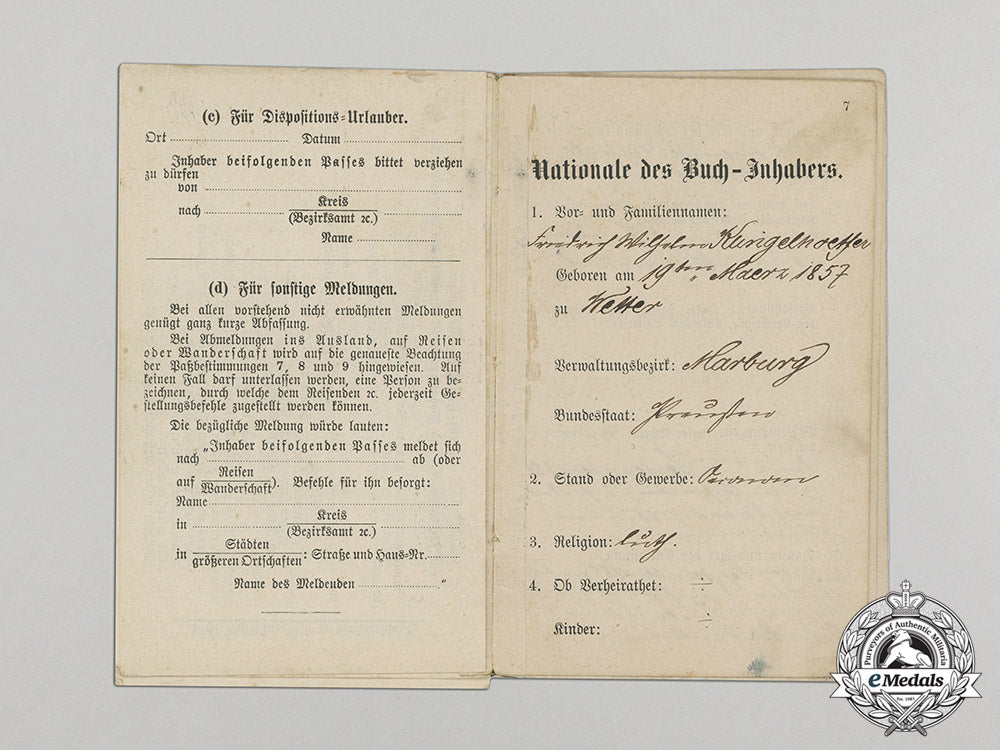 (c) Für Dispositions-Urlauber.
Ort ........ Datum ........
Inhaber beifolgenden Passes bittet verziehen
zu dürfen
von ........
nach ........ Kreis
(Bezirksamt ꝛc.) ........
Name ........
(d) Für sonstige Meldungen.
Bei allen vorstehend nicht erwähnten Meldungen
genügt ganz kurze Abfassung.
Bei Abmeldungen ins Ausland, auf Reisen
oder Wanderschaft wird auf die genaueste Beachtung
der Paßbestimmungen 7, 8 und 9 hingewiesen. Auf
keinen Fall darf unterlassen werden, eine Person zu be-
zeichnen, durch welche dem Reisenden ꝛc. jederzeit Ge-
stellungsbefehle zugestellt werden können.
Die bezügliche Meldung würde lauten:
„Inhaber beifolgenden Passes meldet sich
nach ........ ab (oder
auf Reisen
Wanderschaft). Befehle für ihn besorgt:
Name ........
in ........ Kreis
(Bezirksamt ꝛc.) ........
in Städten
größeren Ortschaften: Straße und Haus-Nr. ........
Name des Meldenden ........“
7
Nationale des Buch-Inhabers.
1. Vor- und Familiennamen:
Friedrich Wilhelm Klingelhoeffer
Geboren am 19ten Maerz 1857
zu Wetter
Verwaltungsbezirk: Marburg
Bundesstaat: Preußen
2. Stand oder Gewerbe:
3. Religion: luth.
4. Ob Verheirathet: ÷
Kinder: ÷
Purveyors of Authentic Militaria
eMedals
Est. 1985